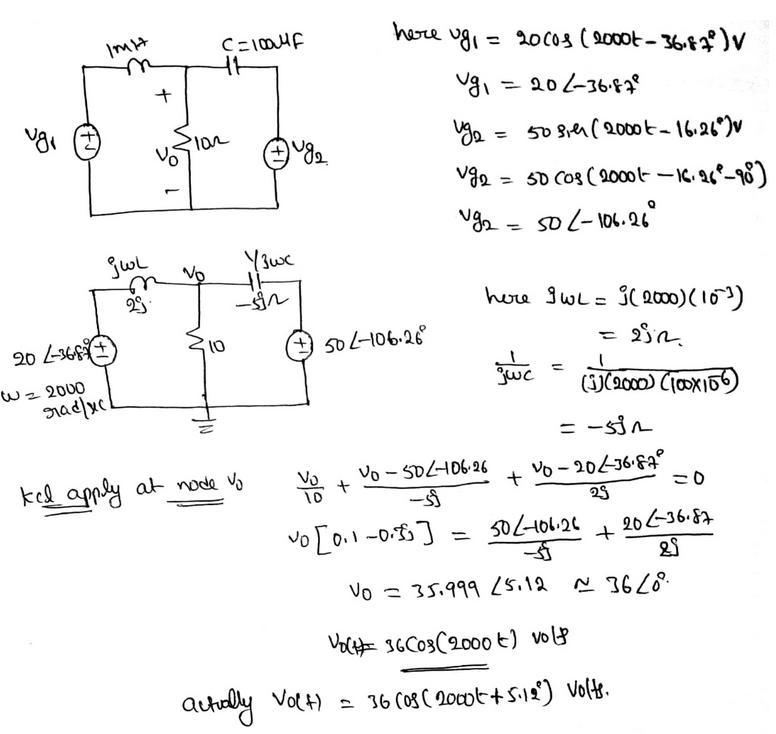 1mH
C=100μF
+
vg1
Vo
10Ω
vg2
-
here vg1 = 20cos(2000t-36.87°)V
vg1 = 20∠-36.87°
vg2 = 50 sin(2000t-16.26°)V
vg2 = 50 cos(2000t-16.26°-90°)
vg2 = 50∠-106.26°
jwL
Vo
1/jwc
2j
-5jΩ
20∠-36.87
10
50∠-106.26°
w = 2000
rad/sec
here jwL = j(2000)(10^-3)
= 2jΩ.
1/jwc = 1/(j)(2000)(100×10^-6)
= -5jΩ
kcl apply at node Vo
Vo/10 + (Vo-50∠-106.26)/-5j + (Vo-20∠-36.87°)/2j = 0
Vo[0.1-0.3j] = 50∠-106.26/-5j + 20∠-36.87/2j
Vo = 35.999∠5.12 ≃ 36∠0°.
Vo(t)= 36Cos(2000t) volts
actually Vo(t) = 36 cos(2000t+5.12°) Volts.